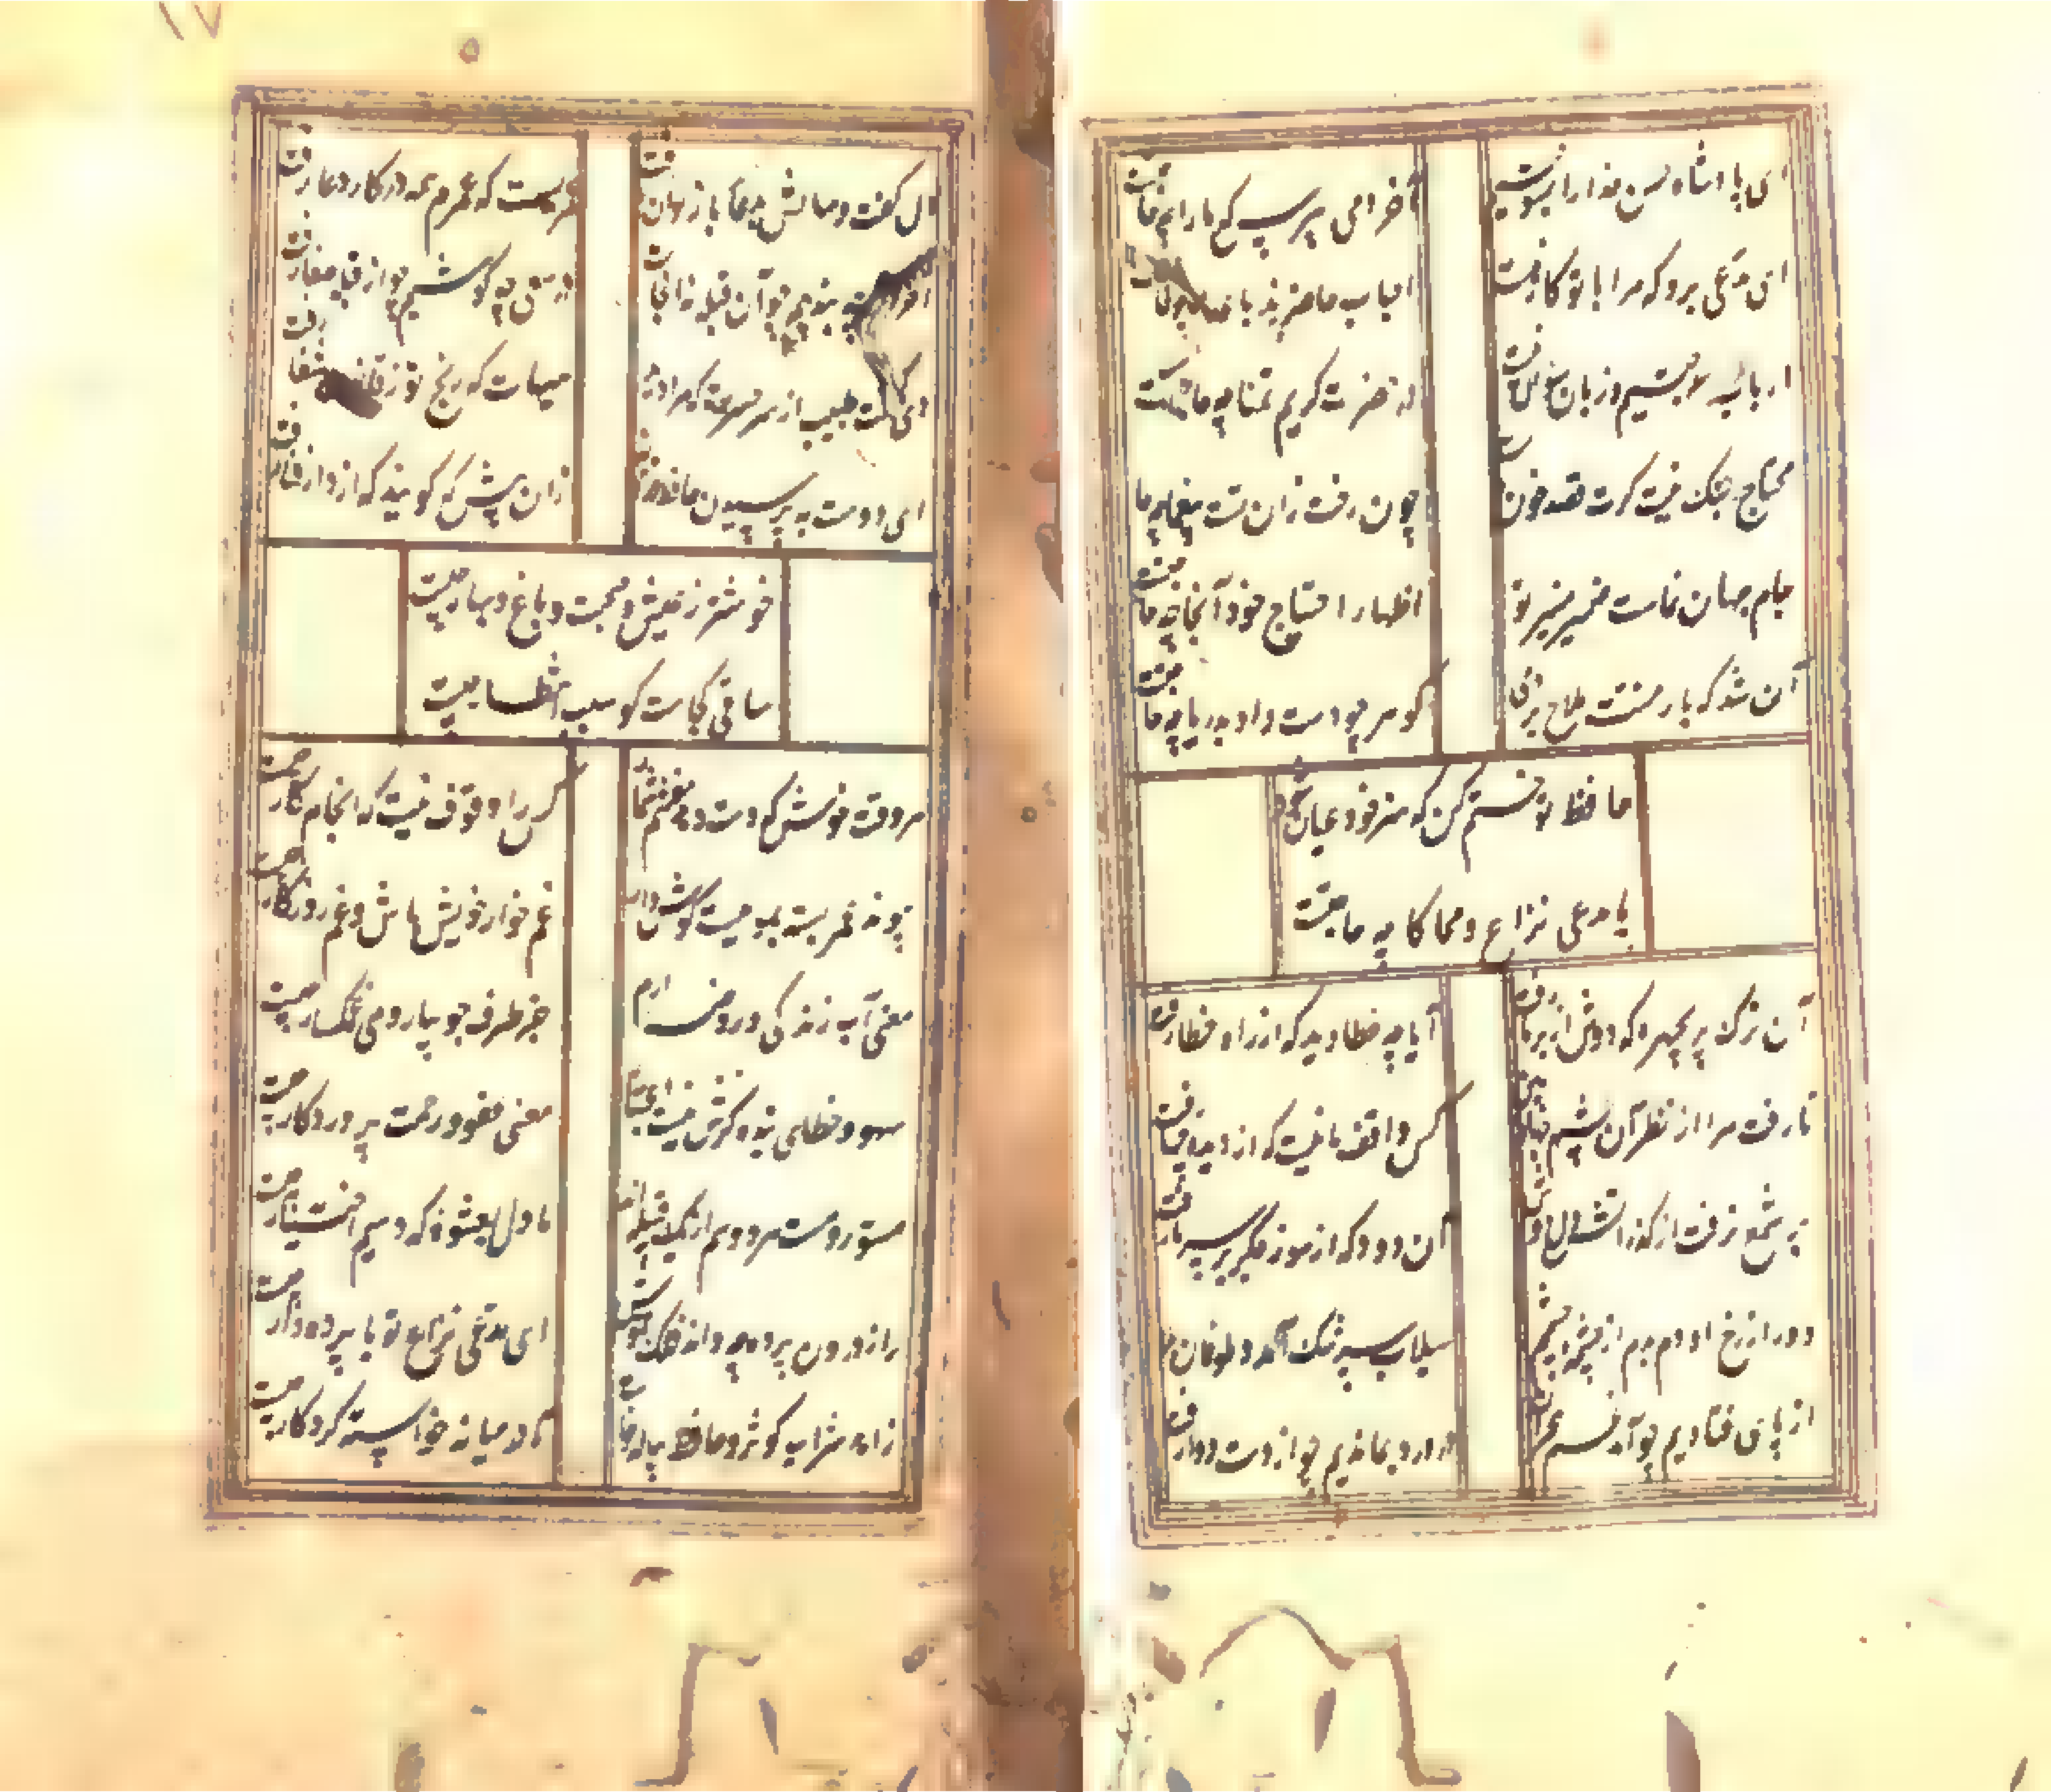 ای پادشاه حسن خدا را بسوختیم
آخر امی بپرس که ما را چه حاجتست
ای مدعی برو که مرا با تو کار نیست
احباب حاضرند باعدا چه حاجتست
ارباب حاجتیم و زبان سؤال نیست
در حضرت کریم تمنا چه حاجتست
محتاج جنگ نیست گرت قصد خون ماست
چون رخت زان تست بیغما چه حاجتست
جام جهان نماست ضمیر منیر تو
اظهار احتیاج خود آنجا چه حاجتست
آن شد که بار منت ملاح بردمی
گوهر چو دست داد بدریا چه حاجتست
حافظ تو ختم کن که هنر خود عیان شود
با مدعی نزاع و محاکا چه حاجتست
آن ترک پریچهره که دوش از بر ما رفت
آیا چه خطا دید که از راه خطا رفت
تا رفت مرا از نظر آن چشم جهان بین
کس واقف ما نیست که از دیده چها رفت
بر شمع نرفت از گذر آتش دل دوش
آن دود که از سوز جگر بر سر ما رفت
دور از رخ او دم بدم از چشمه چشمم
سیلاب سرشک آمد و طوفان بلا رفت
از پای فتادیم چو آمد غم هجران
در درد بماندیم چو از دست دوا رفت
دل گفت وصالش بدعا باز توان یافت
عمریست که عمرم همه در کار دعا رفت
احرام چه بندیم چو آن قبله نه اینجاست
در سعی چه کوشیم چو از قبله صفا رفت
دی گفت طبیب از سر حسرت که مرا دید
هیهات که رنج تو ز قانون شفا رفت
ای دوست به پرسیدن حافظ قدمی نه
زان پیش که گویند که از دار فنا رفت
خوشتر ز عیش و صحبت و باغ و بهار چیست
ساقی کجاست گو سبب انتظار چیست
هر وقت خوش که دست دهد مغتنم شمار
کس را وقوف نیست که انجام کار چیست
پیوند عمر بسته بموییست گوش دار
غم خوار خویش باش و غم روزگار چیست
معنی آب زندگی و روضه ارم
جز طرف جویبار و می خوشگوار چیست
سهو و خطای بنده گرش نیست اعتبار
معنی عفو و رحمت پروردگار چیست
مستور و مست هر دو هم از یک قبیله اند
ما دل بعشوه که دهیم اختیار چیست
راز درون پرده چه داند فلک خموش
ای مدعی نزاع تو با پرده دار چیست
زاهد شراب کوثر و حافظ پیاله خواست
تا در میانه خواسته کردگار چیست